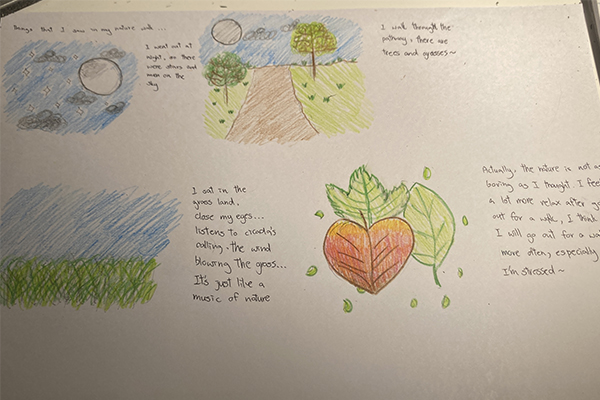 things that I saw in my nature walk ...
I went out at
night, so there
were stars and
moon on the
sky
I walk through the
pathway, there are
trees and grasses~
I sat in the
grass land,
close my eyes...
listens to cicada's
calling, the wind
blowing the grass...
It's just like a
music of nature
Actually, the nature is not as
boring as I thought. I feel
a lot more relax after
out for a walk, I think
I will go out for a
more often, especially
I'm stressed~